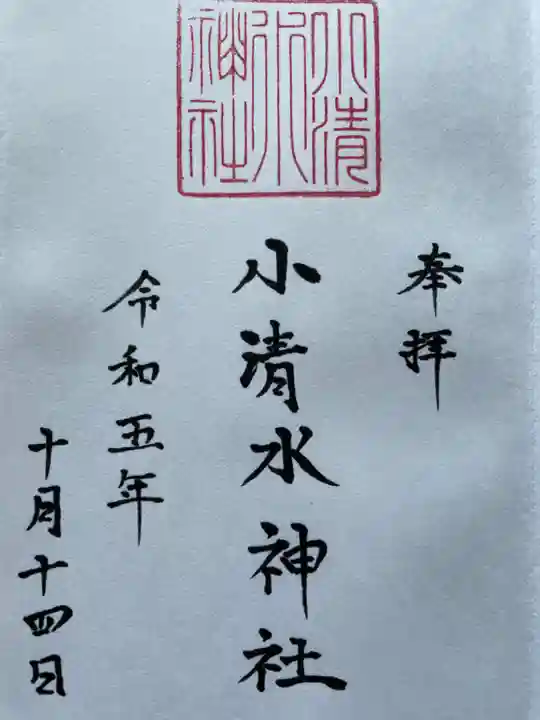 奉拝
小清水神社
小清水神社
令和五年
十月十四日